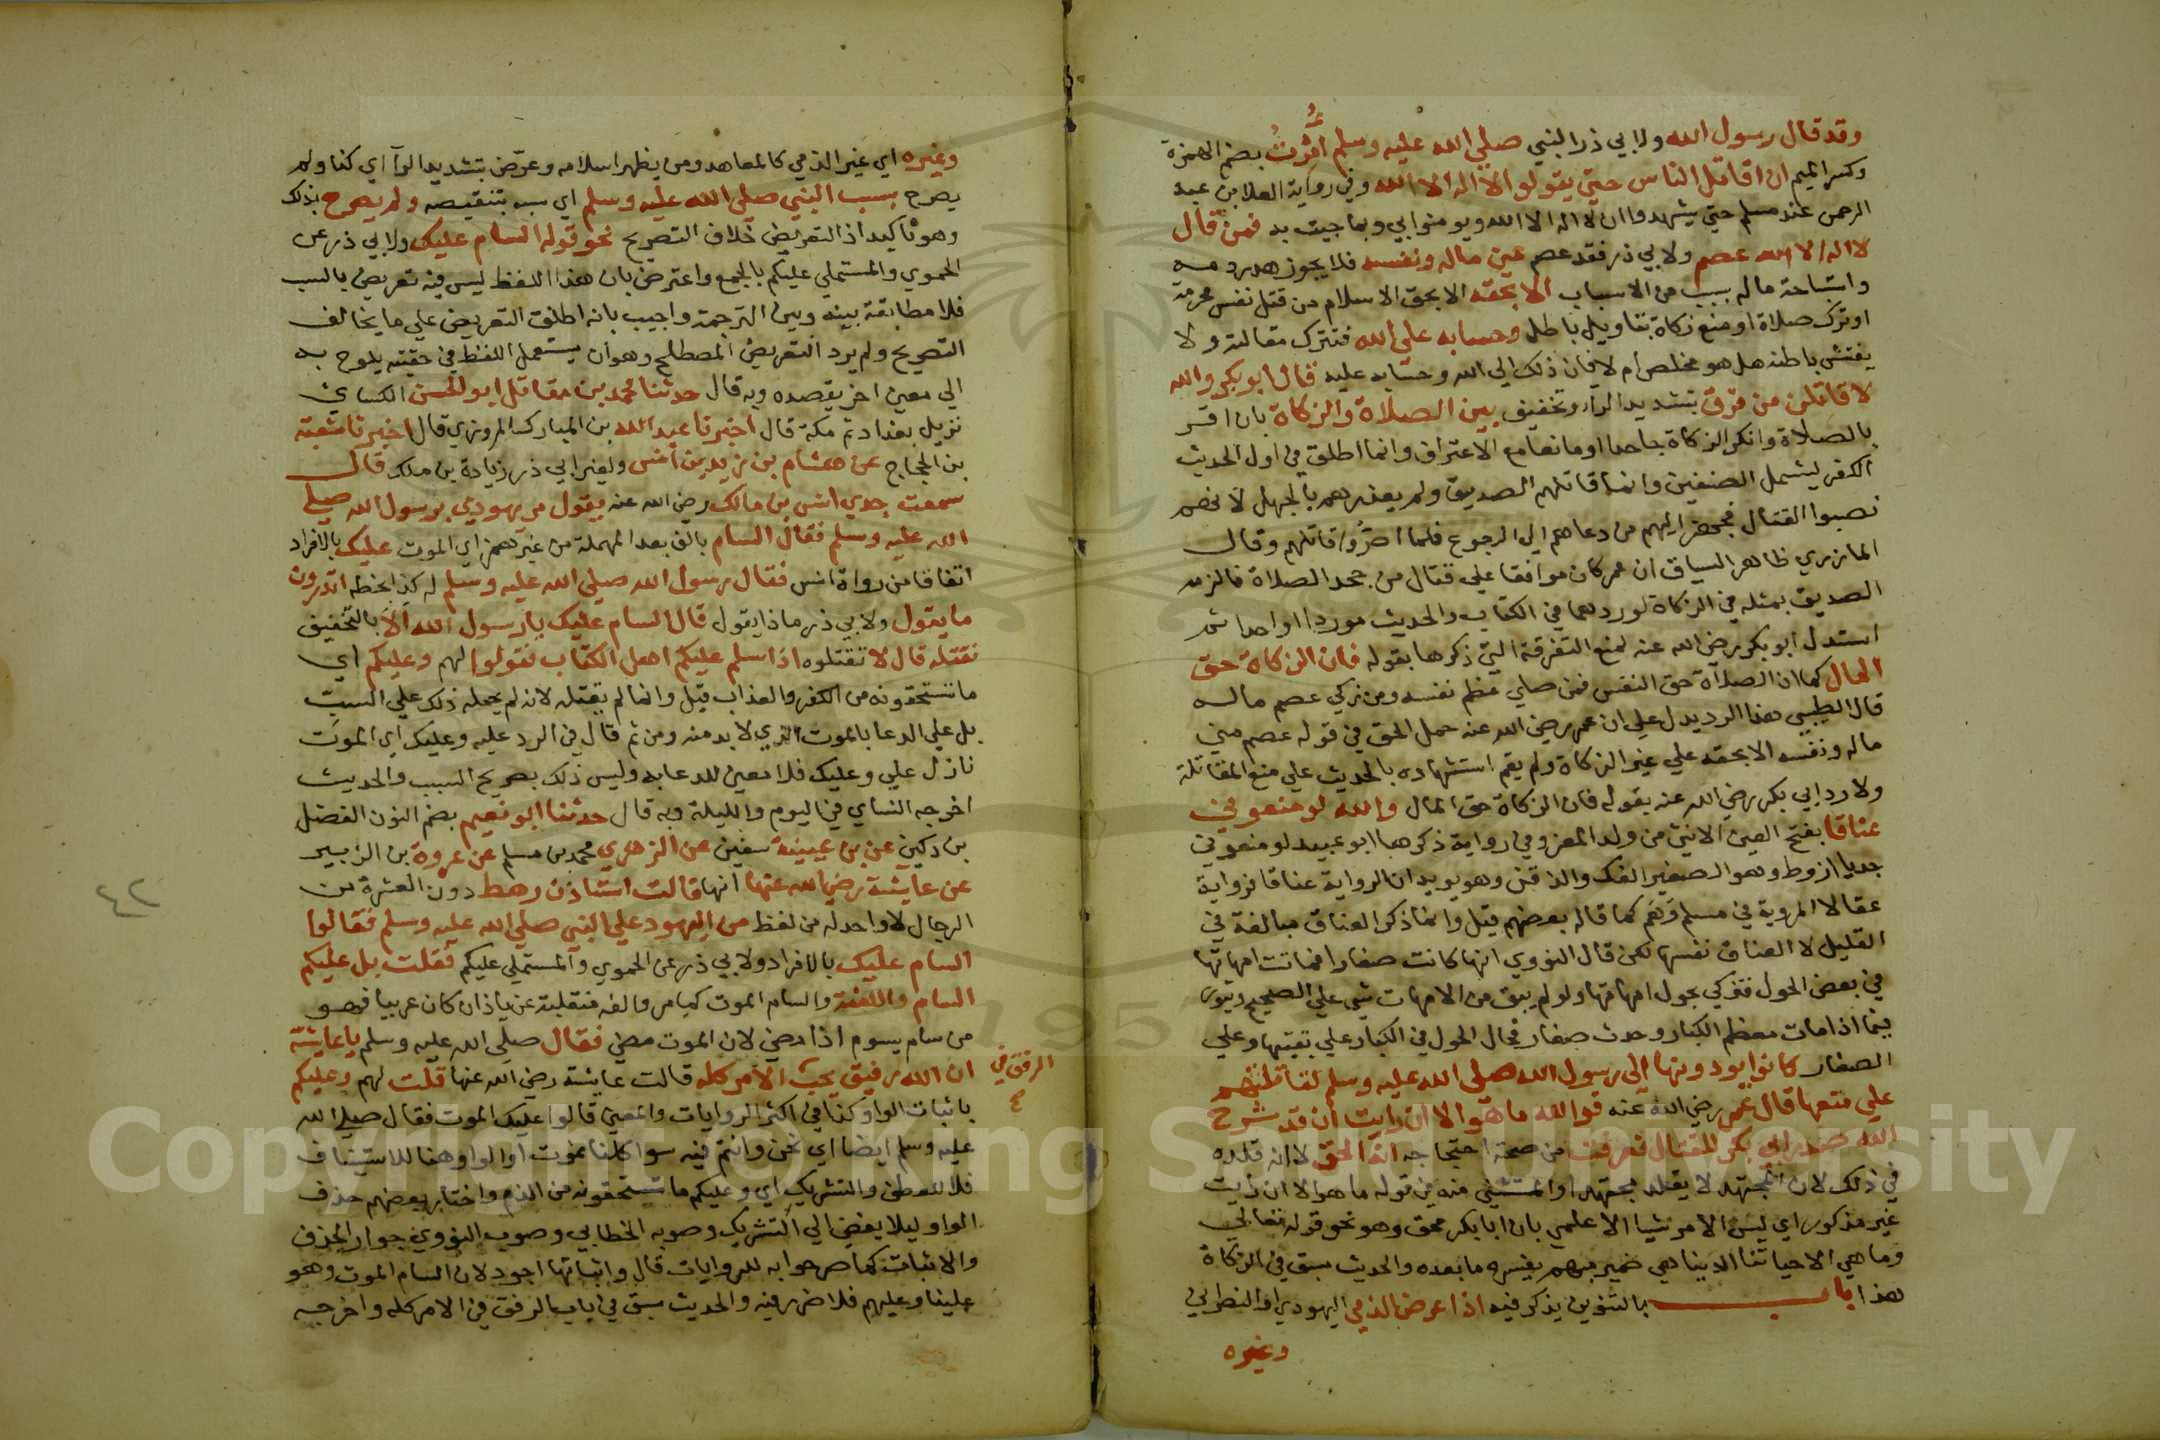 وقد قال رسول الله ولابي ذر النبي صلي الله عليه وسلم أُمِرْتُ بضم الهمزة
وكسر الميم ان اقاتل الناس حتي يقولوا لا اله الا الله وفي رواية العلا بن عبد
الرحمن عند مسلم حتي يشهدوا ان لا اله الا الله ويومنوا بي وبما جيت به فمن قال
لا اله الا الله عصم ولابي ذر فقد عصم مني ماله ونفسه فلا يجوز هدر دمه
واستباحة ماله بسبب من الاسباب الا بحقه الا بحق الاسلام من قتل نفس محرمة
او ترك صلاة او منع زكاة بتاويل باطل وحسابه علي الله فنترك مقالته ولا
يفتش باطنه هل هو مخلص ام لا فان ذلك الي الله وحسابه عليه قال ابو بكر والله
لا قاتلن من فرق بتشديد الرآء وتخفيف بين الصلاة والزكاة بان اقر
بالصلاة وانكر الزكاة جاحدا او مانعا مع الاعتراف وانما اطلق في اول الحديث
الكفر ليشمل الصنفين وانما قاتلهم الصديق ولم يعذرهم بالجهل لانهم
نصبوا القتال فجهز اليهم من دعاهم الي الرجوع فلما اصرُّوا قاتلهم وقال
المازري ظاهر السياق ان عمر كان موافقا علي قتال من جحد الصلاة فالزمه
الصديق بمثله في الزكاة لورودهما في الكتاب والحديث موردا واحدا ثم
استدل ابو بكر رضي الله عنه لمنع التفرقة التي ذكرها بقوله فان الزكاة حق
المال كما ان الصلاة حق النفس فمن صلي عصم نفسه ومن زكي عصم ماله
قال الطيبي هذا الرد يدل علي ان عمر رضي الله عنه حمل الحق في قوله عصم مني
ماله ونفسه الا بحقه علي غير الزكاة ولم يقم استشهاده بالحديث علي منع المقاتلة
ولا رد ابي بكر رضي الله عنه بقوله فان الزكاة حق المال والله لو منعوني
عناقا بفتح العين الانثي من ولد المعز وفي رواية ذكرها ابو عبيد لو منعوني
جديا اذوط وهو الصغير الفك والذقن وهو يويد ان الرواية عناقا فرواية
عقالا المروية في مسلم وَهَم كما قاله بعضهم قيل وانما ذكر العناق مبالغة في
القليل لا العناق نفسها لكن قال النووي انها كانت صغارا فماتت امهاتها
في بعض الحول فتزكي بحول امهاتها ولو لم يبق من الامهات شي علي الصحيح ويتصور
فيما اذا مات معظم الكبار وحدث صغار فحال الحول في الكبار علي بقيتها وعلي
الصغار كانوا يودونها الي رسول الله صلي الله عليه وسلم لقاتلتهم
علي منعها قال عمر رضي الله عنه فوالله ما هو الا ان رايت ان قد شرح
الله صدر ابي بكر للقتال فعرفت من صحة احتجاجه انه الحق لا انه قلده
في ذلك لان المجتهد لا يقلد مجتهدا والمستثني منه في قوله ما هو الا ان رايت
غير مذكور اي ليس الامر شيا الا علمي بان ابا بكر محق وهو نحو قوله تعالي
وما هي الا حياتنا الدنيا هي ضمير مبهم يفسره ما بعده والحديث سبق في الزكاة
هذا باب بالتنوين يذكر فيه اذا عرض الذمي اليهودي او النصراني
وغيره
وغيره اي غير الذمي كالمعاهد ومن يظهر اسلامه وعرّض بتشديد الرآ اي كنا ولم
يصرح بسب النبي صلي الله عليه وسلم اي سبه بتنقيصه ولم يصرح بذلك
وهو تاكيد اذ التعريض خلاف التصريح نحو قوله السام عليك ولابي ذر عن
الحموي والمستملي عليكم بالجمع واعترض بان هذا اللفظ ليس فيه تعريض بالسب
فلا مطابقة بينه وبين الترجمة واجيب بانه اطلق التعريض علي ما يخالف
التصريح ولم يرد التعريض المصطلح وهو ان يستعمل اللفظ في حقيقته يلوح به
الي معين اخر يقصده وبه قال حدثنا محمد بن مقاتل ابو الحسن الكساي
نزيل بغداد ثم مكة قال اخبرنا عبد الله بن المبارك المروزي قال اخبرنا شعبة
بن الحجاج عن هشام بن زيد بن انس ولغير ابي ذر زيادة بن ملك قال
سمعت جدي انس بن مالك رضي الله عنه يقول مر يهودي برسول الله صلي
الله عليه وسلم فقال السام بالف بعد المهملة من غير همز اي الموت عليك بالافراد
اتفاقا من رواة انس فقال رسول الله صلي الله عليه وسلم له كذا بخطه اتدرون
ما يقول ولابي ذر ماذا يقول قال السام عليك يارسول الله الا بالتخفيف
نقتله قال لا تقتلوه اذا سلم عليكم اهل الكتاب فقولوا لهم وعليكم اي
ما تستحقونه من الكفر والعذاب قيل وانما لم يقتله لانه لم يحمل ذلك علي السب
بل علي الدعا بالموت الذي لا بد منه ومن ثم قال في الرد عليه وعليك اي الموت
نازل علي وعليك فلا معين للدعا به وليس ذلك بصريح السب والحديث
اخرجه النساي في اليوم والليلة وبه قال حدثنا ابو نعيم بضم النون الفضل
بن دكين عن بن عيينة سفين عن الزهري محمد بن مسلم عن عروة بن الزبير
عن عايشة رضي الله عنها انها قالت استاذن رهط دون العشرة من
الرجال لا واحد له من لفظه من اليهود علي النبي صلي الله عليه وسلم فقالوا
السام عليك بالافراد ولابي ذر عن الحموي والمستملي عليكم فقلت بل عليكم
السام واللعنة والسام الموت كما مر والفه منقلبة عن يا ذ ان كان عربيا فهو
من سام يسوم اذا مضي لان الموت مضي فقال صلي الله عليه وسلم يا عايشة
ان الله رفيق يحب الرفق في الامر كله قالت عايشة رضي الله عنها قلت لهم وعليكم
باثبات الواو كذا في اكثر الروايات والمعني قالوا عليك الموت فقال صلي الله
عليه وسلم ايضا اي نحن وانتم فيه سوا كلنا نموت او الواو هنا للاستيناف
فلا للعطف والتشريك اي وعليكم ما تستحقونه من الذم واختار بعضهم حذف
الواو ليلا يفضي الي التشريك وصوبه الخطابي وصوب النووي جواز الحذف
والاثبات كما صرحوا به للروايات قال واثباتها اجود لان السام الموت وهو
علينا وعليهم فلا ضرر فيه والحديث سبق في باب الرفق في الامر كله واخرجه
٤٢
Copyright © King Saud University
1957